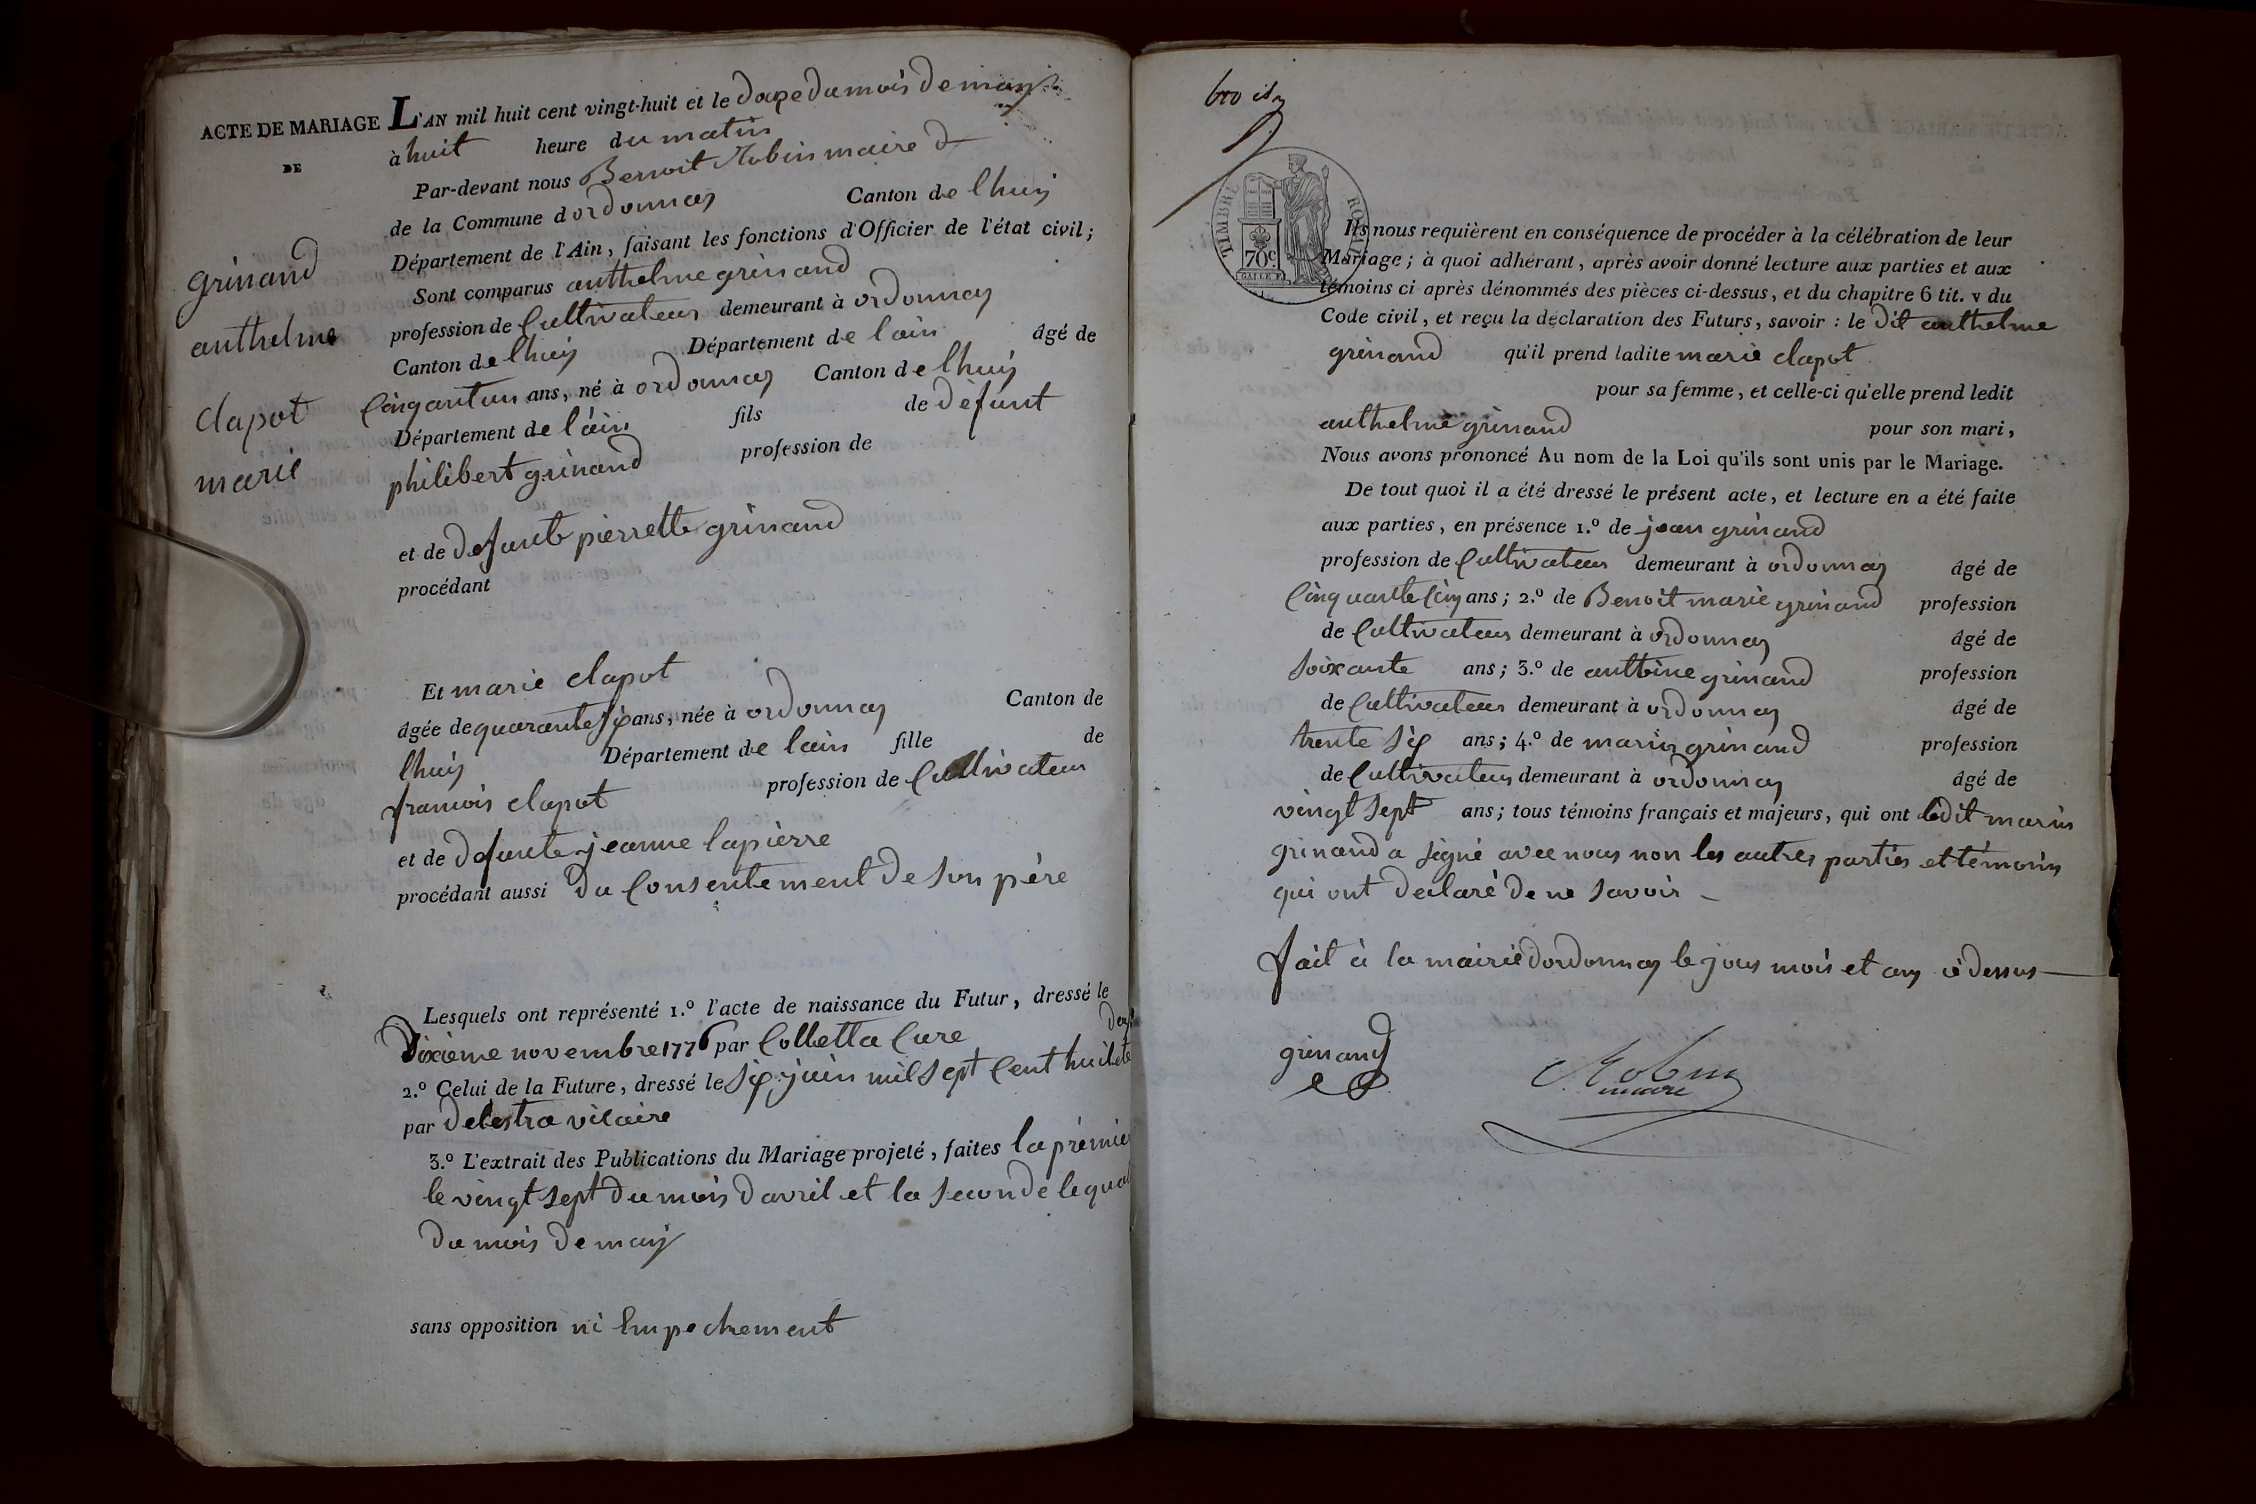 ACTE DE MARIAGE
DE
grinand
anthelme
clapot
marie
L'AN mil huit cent vingt-huit et le douze du mois de may
à huit heure du matin
Par-devant nous Benoit Robin maire d
de la Commune dordonnas Canton de lhuis
Département de l'Ain, faisant les fonctions d'Officier de l'état civil;
Sont comparus anthelme grinand
profession de Cultivateur demeurant à ordonnas
Canton de lhuis Département de lain âgé de
Cinqantun ans, né à ordonnas Canton de lhuis
Département de l'ain fils de défunt
philibert grinand profession de
et de defunte pierrette grinand
procédant
Et marie clapot
âgée de quarante six ans, née à ordonnas Canton de
lhuis Département de lain fille de
francois clapot profession de Cultivateur
et de defunte jeanne lapierre
procédant aussi du Consentement de son père
Lesquels ont représenté 1.º l'acte de naissance du Futur, dressé le
Dixieme novembre 1776 par Colletta Cure
2.º Celui de la Future, dressé le six juin mil sept Cent huitete
par delestra vicaire
3.º L'extrait des Publications du Mariage projeté, faites la prémie
le vingt sept du mois davril et la seconde le quat
du mois de may
sans opposition ni Empechement
trois
TIMBRE ROYAL
70 c
Ils nous requièrent en conséquence de procéder à la célébration de leur
Mariage; à quoi adhérant, après avoir donné lecture aux parties et aux
témoins ci après dénommés des pièces ci-dessus, et du chapitre 6 tit. v du
Code civil, et reçu la déclaration des Futurs, savoir : le dit anthelme
grinand qu'il prend ladite marie clapot
pour sa femme, et celle-ci qu'elle prend ledit
anthelme grinand pour son mari,
Nous avons prononcé Au nom de la Loi qu'ils sont unis par le Mariage.
De tout quoi il a été dressé le présent acte, et lecture en a été faite
aux parties, en présence 1.º de jean grinand
profession de Cultivateur demeurant à ordonnas âgé de
Cinquante Cinq ans; 2.º de Benoit marie grinand profession
de Cultivateur demeurant à ordonnas âgé de
soixante ans; 3.º de anttoine grinand profession
de Cultivateur demeurant à ordonnas âgé de
trente six ans; 4.º de marin grinand profession
de Cultivateur demeurant à ordonnas âgé de
vingt sept ans; tous témoins français et majeurs, qui ont ledit marin
grinand a signé avec nous non les autres parties et témoins
qui ont declaré de ne savoir
fait à la mairie dordonnas le jour mois et an ci dessus
grinand
Robin
maire